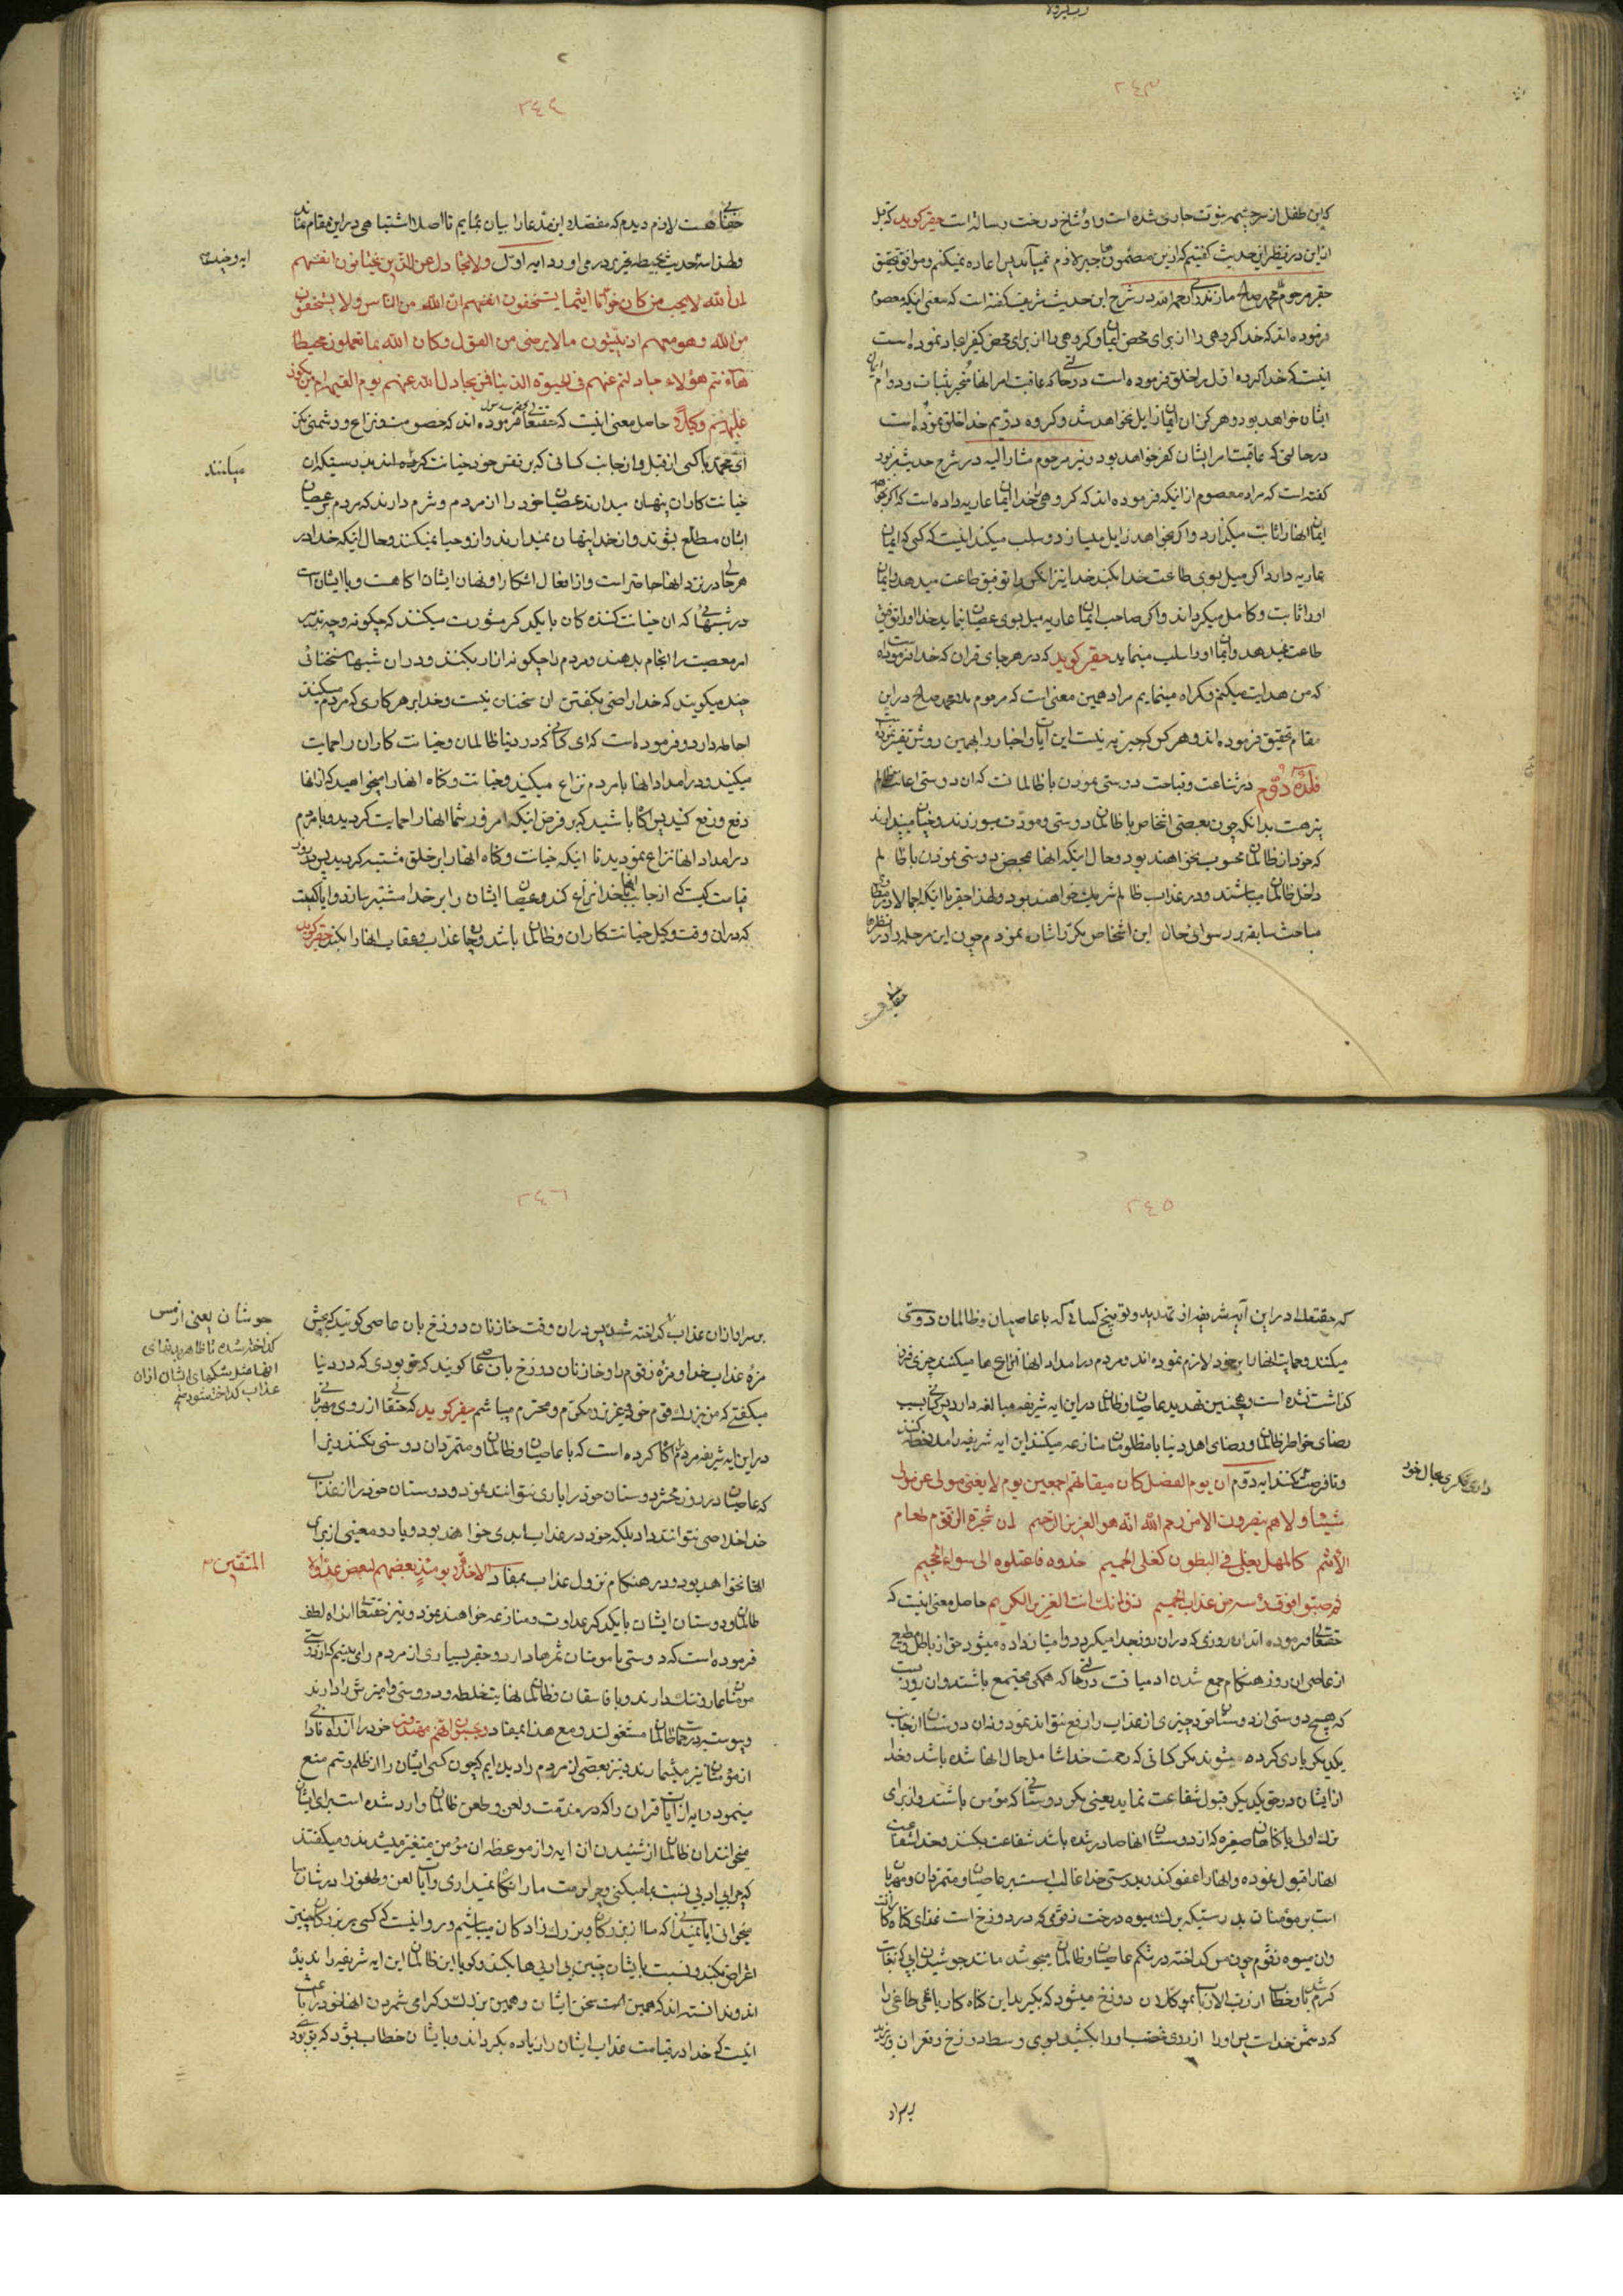 ٢٤٣
که این طفل از سرچشمه نبوت جاری شده است و او شاخ درخت رسالة است حقیر کوید که قبل
از این در نظر این حدیث کفتیم که از این مضمون جبر لازم نمیآید پس اعاده نمیکنم و موافق تحقیق
حقیر مرحوم محمد صالح مازندرانی رحمه الله در شرح این حدیث شریف کفته است که معنی اینکه معصوم
فرموده اند که خدا کروهی را از برای محض ایمان و کروهی را از برای محض کفر ایجاد نموده است
اینست که خدا کروه اول را خلق فرموده است در حالتی که عاقبت امر انها منجر بثبات و دوام ایمان
ایشان خواهد بود و هرکز ان ایمان زایل نخواهد شد و کروه دویم خدا خلق نموده است
در حالتی که عاقبت امر ایشان کفر خواهد بود و نیز مرحوم مشار الیه در شرح حدیث مزبور
کفته است که مراد معصوم از اینکه فرموده اند که کروهی را خدا ایمان عاریه داده است که اکر خواهد
ایمان انها را ثابت میکذارد و اکر نخواهد زایل میسازد و سلب میکند اینست که کسی که ایمان
عاریه دارد اکر میل بسوی طاعت خدا بکند خدا نیز انکس را توفیق طاعت میدهد و ایمان
او را ثابت و کامل میکرداند و اکر صاحب ایمان عاریه میل بسوی عصیان نماید خدا او را توفیق
طاعت نمیدهد و ایمان او را سلب مینماید حقیر کوید که در هر جای قران که خدا فرموده است
که من هدایت میکنم و کمراه مینمایم مراد همین معنی است که مرحوم ملا محمد صالح در این
مقام تحقیق فرموده اند و هر کس که جبریه نیست این آیات و اخبار را بهمین روش تفسیر نموده است
فایده دوم در شناعت و قباحت دوستی نمودن با ظالمان که ان دوستی اعانت ظالم
نیز هست بدانکه چون بعضی اشخاص با ظالمان دوستی و مودت میورزند و چنان میپندارند
که خود از ظالمان محسوب نخواهند بود و حال اینکه انها بمحض دوستی نمودن با ظالم
داخل ظالمان میباشند و در عذاب ظالم شریک خواهند بود و لهذا حقیر با اینکه اجمالا در
مباحث سابقه بر رسوائی حال این اشخاص مکرر اشاره نمودم چون این مرحله را در نظرها
٢٤٤
خفائی هست لازم دیدم که مفصلا این مدعا را بیان نمایم تا اصلا اشتباهی در این مقام نماند
ولا تجادل عن الذین یختانون انفسهم
ان الله لا یحب من کان خوانا اثیما یستخفون من الناس ولا یستخفون
من الله وهو معهم اذ یبیتون مالا یرضی من القول وکان الله بما تعملون محیطا
ها انتم هؤلاء جادلتم عنهم فی الحیوة الدنیا فمن یجادل الله عنهم یوم القیمه ام من یکون
علیهم وکیلا حاصل معنی اینست که حقتعالی فرموده اند که خصومت و نزاع و دشمنی مکن
ای محمد با کسی از قبل و از جانب کسانی که بر نفس خود خیانت کرده اند بدرستیکه ان
خیانت کاران پنهان میدارند عصیان خود را از مردم و شرم دارند که مردم بر عصیان
ایشان مطلع بشوند و از خدا پنهان نمیدارند و از او حیا نمیکنند و حال اینکه خدا در
هر جا در نزد انها حاضر است و از افعال اشکار و نهان ایشان اکاه است و با ایشان است
در شبهائی که ان خیانت کننده کان با یکدیکر مشورت میکنند که چکونه و چه تدبیر
امر معصیت را انجام بدهند و مردم را چکونه ازار بکنند و در ان شبها سخنانی
چند میکویند که خدا راضی بکفتن ان سخنان نیست و خدا بر هر کاری که مردم میکنند
احاطه دارد و فرموده است که ای کسانی که در دنیا ظالمان و خیانت کاران را حمایت
میکنید و در امداد انها با مردم نزاع میکنید و خیانت و کناه انها را میخواهید که از انها
دفع و رفع کنید پس اکاه باشید که بر فرض اینکه امروز شما انها را حمایت کردید و با مردم
در امداد انها نزاع نمودید تا اینکه خیانت و کناه انها را بر خلق مشتبه کردید پس در روز
قیامت کیست که از جانب انها با خدا نزاع کند و عصیان ایشان را بر خدا مشتبه سازد و ایا کیست
که در ان وقت وکیل خیانت کاران و ظالمان باشد و عذاب و عقاب انها را بکند حقیر کوید
٢٤٥
که حقتعالی در این آیه شریفه از تهدید و توبیخ کسانی که با عاصیان و ظالمان دوستی
میکنند و حمایت انها را بر خود لازم نموده اند و مردم در امداد انها نزاعها میکنند چیزی فرو
کذاشت نشده است و همچنین تهدید عاصیان و ظالمان در این ایه شریفه مبالغه دارد پس کسانی که بسبب
رضای خاطر ظالمان و رضای اهل دنیا با مظلومان منازعه میکنند این ایه شریفه را ملاحظه کنند
ایه دوم ان یوم الفصل کان میقاتهم اجمعین یوم لا یغنی مولی عن مولی
شیئا ولا هم ینصرون الا من رحم الله انه هو العزیز الرحیم ان شجرة الزقوم طعام
الاثیم کالمهل یغلی فی البطون کغلی الحمیم خذوه فاعتلوه الی سواء الجحیم
ثم صبوا فوق رأسه من عذاب الحمیم ذق انک انت العزیز الکریم حاصل معنی اینست که
حقتعالی فرموده اند ان روزی که در ان روز جدا میکردد و امتیاز داده میشود حق از باطل و مطیع
از عاصی ان روز هنکام جمع شدن ادمیان است در حالتی که همکی مجتمع باشند و ان روزیست
که هیچ دوستی از دوستان خود چیزی از عذاب را رفع نتواند نمود و نه ان دوستان از جانب
یکدیکر یاری کرده میشوند مکر کسانی که رحمت خدا شامل حال انها شده باشد و خدا
از ایشان در حق یکدیکر قبول شفاعت نماید یعنی مکر دوستانی که مؤمن باشند و از برای
ترک اولی یا کناهان صغیره که از دوستان انها صادر شده باشد شفاعت بکنند و خدا شفاعت
انها را قبول نموده و انها را عفو کند بدرستی خدا غالب است بر عاصیان و متمردان و مهربان
است بر مؤمنان بدرستیکه برک میوه درخت زقومی که در دوزخ است غذای کناه کاران است
وان میوه زقوم چون مس کداخته در شکم عاصیان و ظالمان میجوشد مانند جوشیدن ابی که بغایت
کرم باشد و خطاب از رب الارباب بموکلان دوزخ میشود که بکیرید این کناه کار یاغی طاغی را
که دشمن خداست پس او را از روی غضب او را بکشید بسوی وسط دوزخ و قعر ان و بریزید
بر سر او
٢٤٦
بر سر او از ان عذاب کداخته شده پس در ان وقت خازنان دوزخ بان عاصی کویند که بچش
مزه عذاب خدا و مزه زقوم را و خازنان دوزخ بان عاصی کویند که تو بودی که در دنیا
میکفتی که من بزرک قوم خود و عزیز و مکرم و محترم میباشم حقیر کوید که حقتعالی از روی مهربانی
در این ایه شریفه مردم را اکاه کرده است که با عاصیان و ظالمان و متمردان دوستی نکنند زیرا
که عاصیان در روز محشر دوستان خود را یاری نتوانند نمود و دوستان خود را از عذاب
خدا خلاصی نتوانند داد بلکه خود در عذاب ابدی خواهند بود و یار و معینی از برای
انها نخواهد بود و در هنکام نزول عذاب بمفاد الاخلاء یومئذ بعضهم لبعض عدو الا
المتقین
ظالمان و دوستان ایشان با یکدیکر عداوت و منازعه خواهند نمود و نیز حقتعالی از راه لطف
فرموده است که دوستی با مومنان ثمرها دارد و حقیر بسیاری از مردم را می بینم که از دوستی
مومنان عار و ننک دارند و با فاسقان و ظالمان نهایت خلطه و دوستی و امیزش را دارند
و پیوسته در حمایت ظالمان مشغولند و مع هذا بمفاد ویحسبون انهم مهتدون خود را از راه نادانی
از مؤمنان نیز میشمارند و نیز بعضی از مردم را دیده ایم که چون کسی ایشان را از ظلم و ستم منع
مینمود و ایه از آیات قران را که در مذمت و لعن و طعن ظالمان وارد شده است برای ایشان
میخوانند ان ظالمان از شنیدن ان ایه و از موعظه ان مؤمن متغیر میشدند و میکفتند
که چرا بی ادبی نسبت بما میکنی و چرا حرمت ما را نکاه نمیداری و آیات لعن و طعن را در شان ما
میخوانی ایا نمیدانی که ما از بزرکان و بزرک زادکان میباشیم و روا نیست که کسی بر بزرکان چنین
اعتراض بکند و نسبت بایشان چنین بی ادبی ها بکند و کویا این ظالمان این ایه شریفه را ندیده
اند و ندانسته اند که همین سخن ایشان و همین بزرک و کرامی شمردن انها خود را باعث
اینست که خدا در قیامت عذاب ایشان را زیاده بکرداند و بایشان خطاب بشود که تو بودی
جوشان یعنی از مس
کداخته شده
عذاب کداخته شود